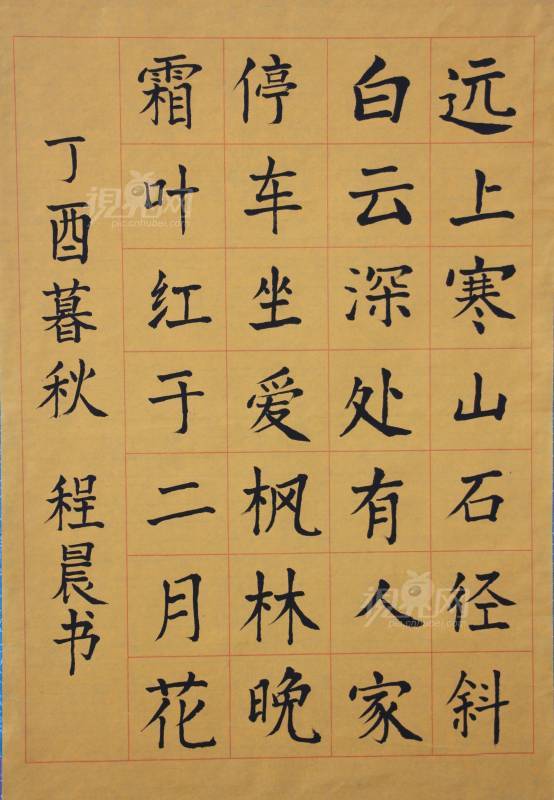 远上寒山石径斜
白云深处有人家
停车坐爱枫林晚
霜叶红于二月花
丁酉暮秋 程晨书
視界网
pic.cnhubei.com
視界网
pic.cnhubei.com